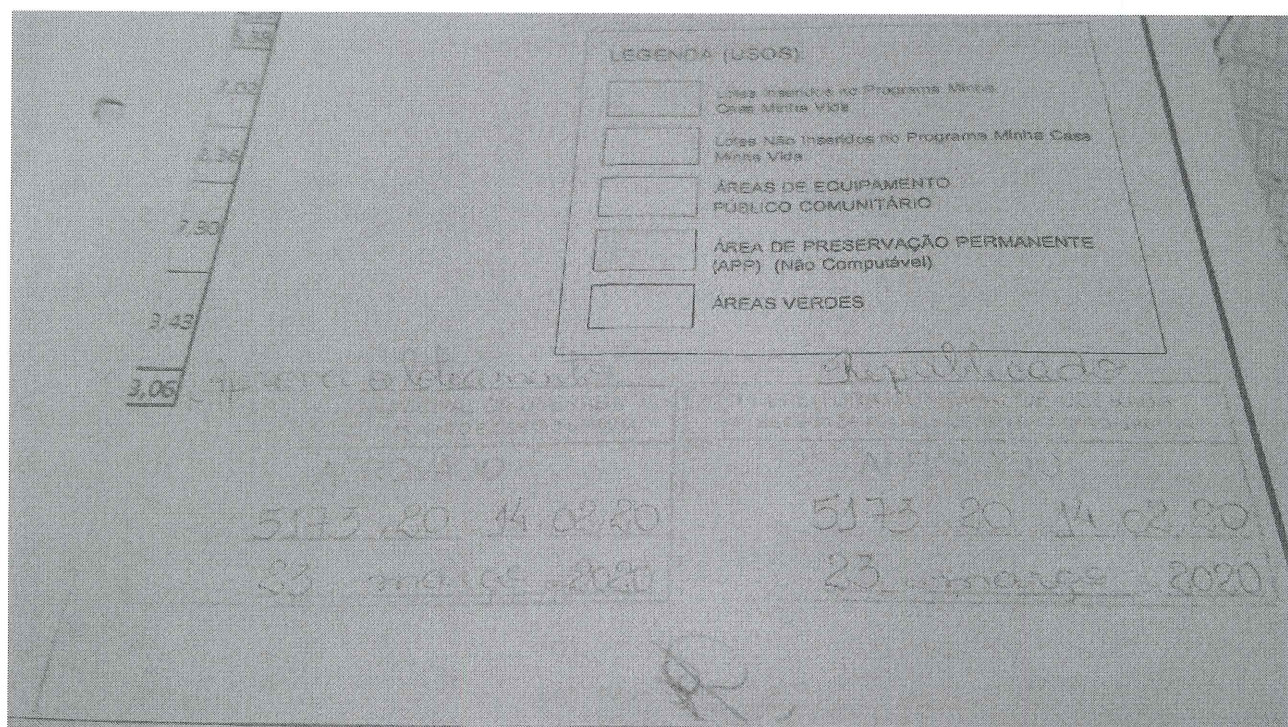 5,36
7,02
2,36
7,90
3,43
3,06
LEGENDA (USOS):
Lotes Inseridos no Programa Minha
Casa Minha Vida
Lotes Não Inseridos no Programa Minha Casa
Minha Vida
ÁREAS DE EQUIPAMENTO
PÚBLICO COMUNITÁRIO
ÁREA DE PRESERVAÇÃO PERMANENTE
(APP) (Não Computável)
ÁREAS VERDES
o loteamento
APROVADO
5173 20 14 02 20
23 março 2020
Republicado
APROVADO
5173 20 14 02 20
23 março 2020